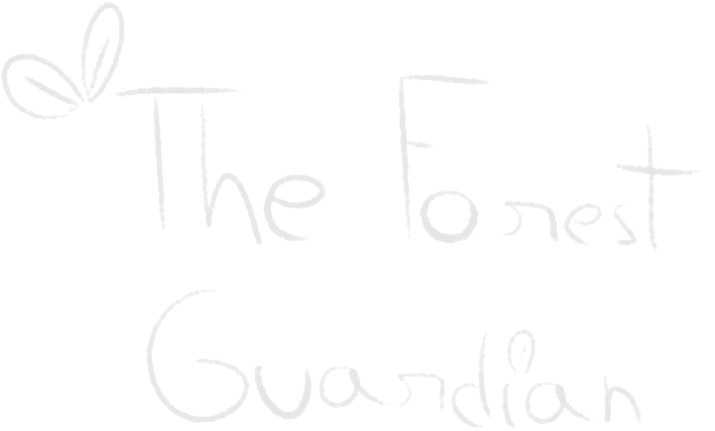 The Forest
Guardian